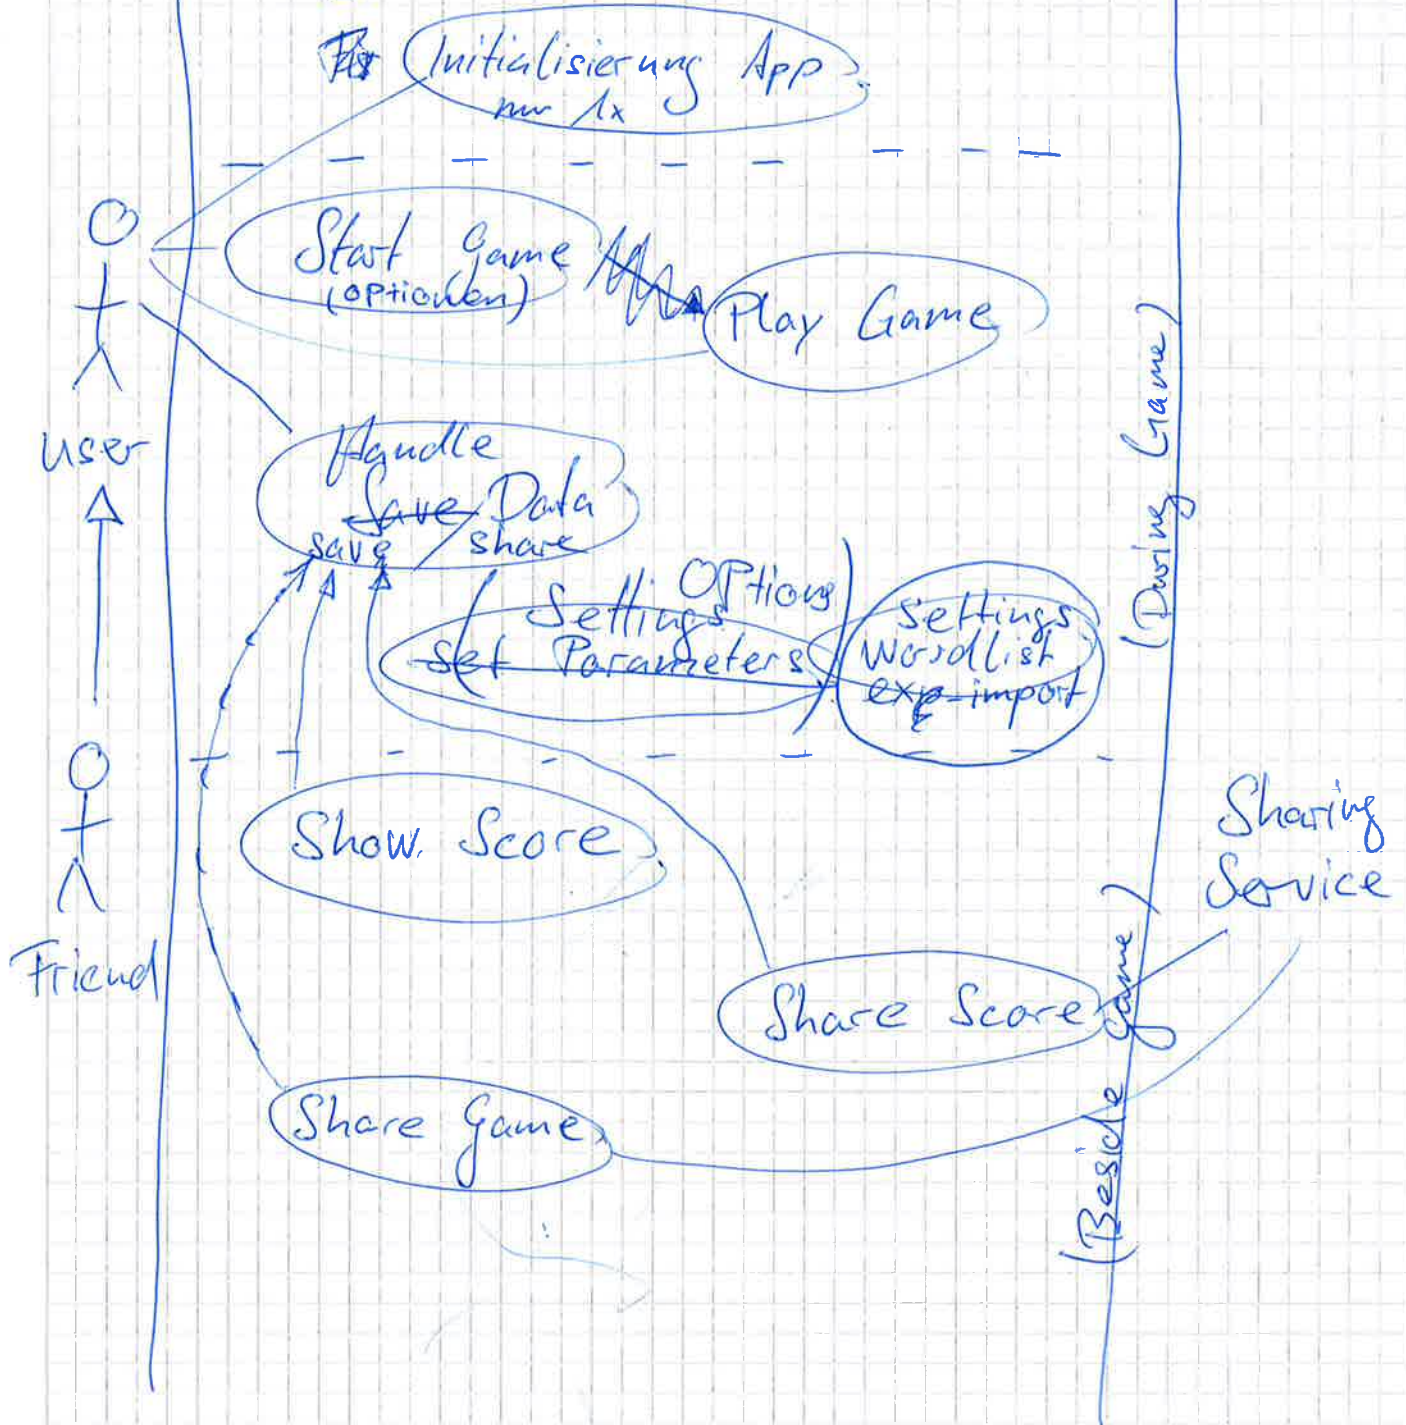 Initialisierung App
nur 1x
Start Game
(optionen)
Play Game
User
Handle
Save Data
save / share
Options
Settings
Set Parameters
Settings
Wordlist
exp-import
(During Game)
Show Score
Sharing
Service
Friend
Share Score
Share Game
(Beside game)